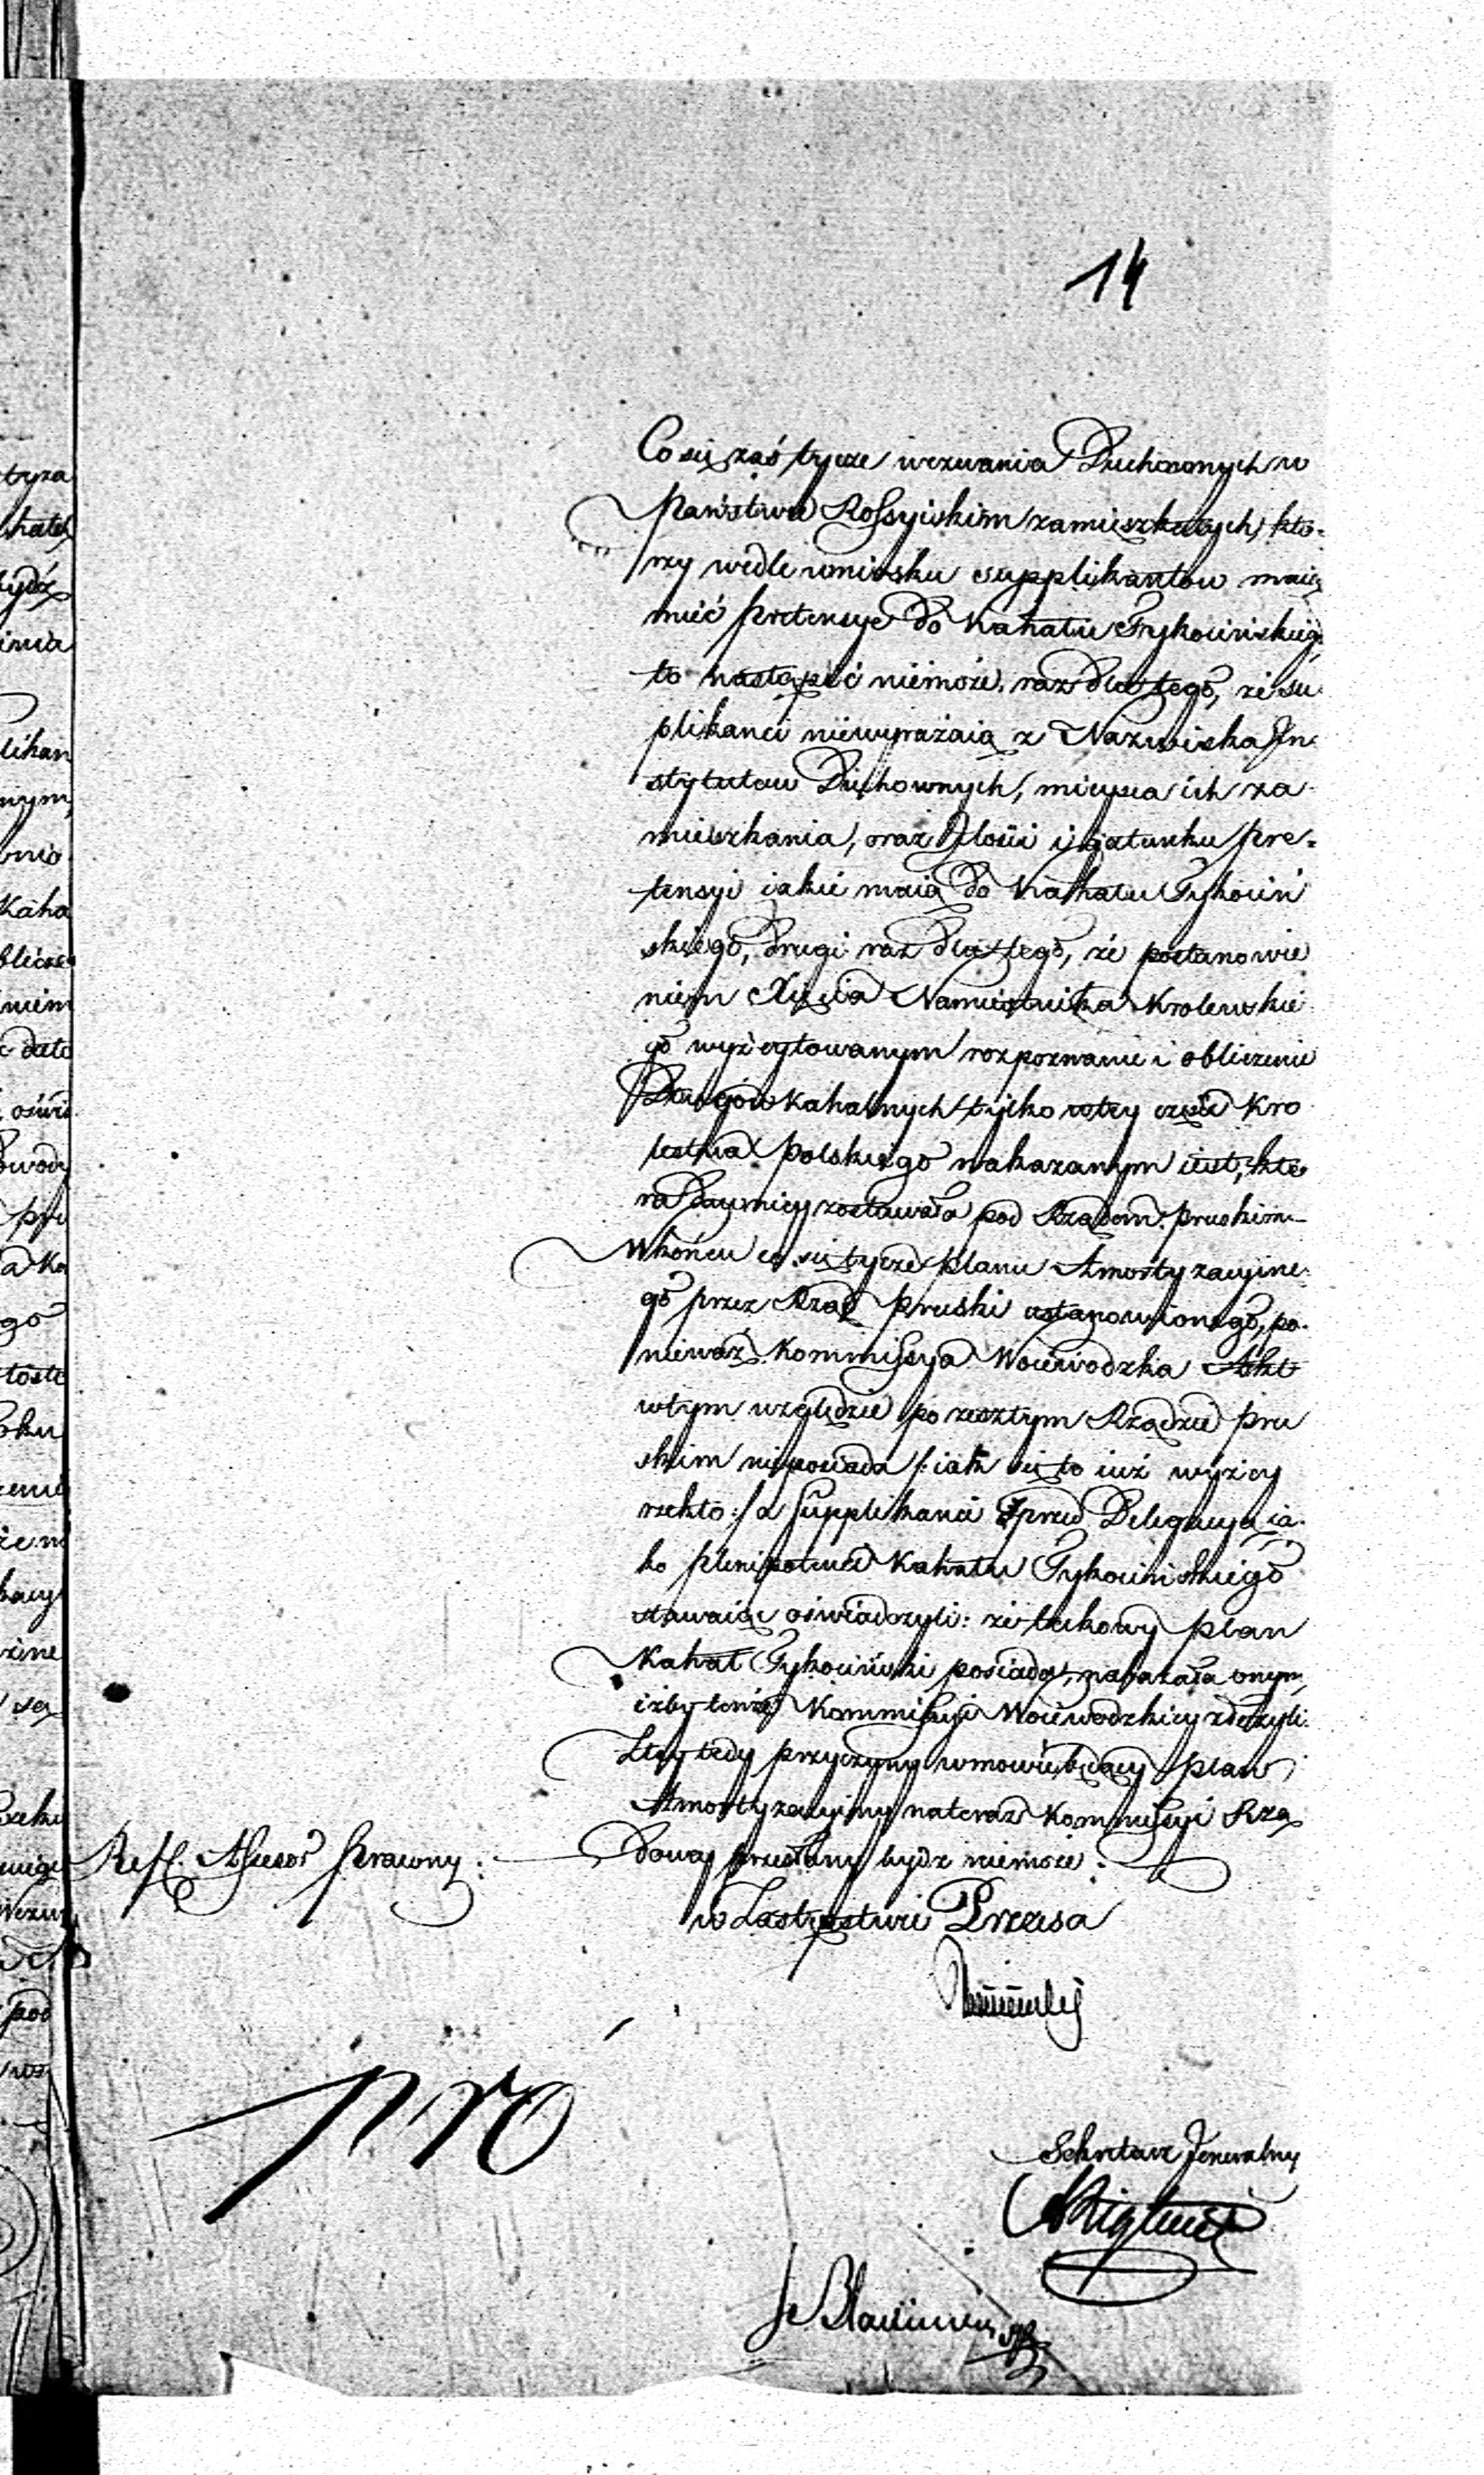 14
Co się zaś tycze wezwania Duchownych w
Państwie Rossyiskim zamieszkałych, któ-
rzy wedle wniosku supplikantow maią
mieć pretensye do Kahału Tykocińskiego
to nastąpić niemoże, raz dla tego, że su
plikanci niewyrażaią z Nazwiska In
stytutow Duchownych, mieysca ich za
mieszkania, oraz Ilości i gatunku pre-
tensyi iakie maią do Kahału Tykociń
skiego, drugi raz dla tego, że postanowie
niem Xięcia Namiestnika Krolewskie
go wyż cytowanym rozpoznanie i obliczenie
Długów Kahalnych tylko w tey części Kro
lestwa Polskiego nakazanym iest, któ
ra dawniey zostawała pod Rządem pruskim
Wkońcu co się tycze planu Amortyzacyine
go przez Rząd pruski ustanowionego, po-
nieważ Kommissya Woiewodzka Akt
w tym względzie po zeszłym Rządzie pru
skim nieposiada /: iak się to iuż wyżey
rzekło :/ a Supplikanci przed Delegacyą ia-
ko plenipotenci Kahału Tykocińskiego
stawaiąc oświadczyli: że takowy plan
Kahał Tykociński posiada, nakazała onym,
iżby tenże Kommissyi Woiewodzkiey złożyli.
Z tey tedy przyczyny w mowie będący plan
Amortyzacyiny na teraz Kommissyi Rzą
Ref. Assessor Prawny:
dowey przesłany bydź niemoże.
w Zastępstwie Prezesa
Sekretarz Jeneralny